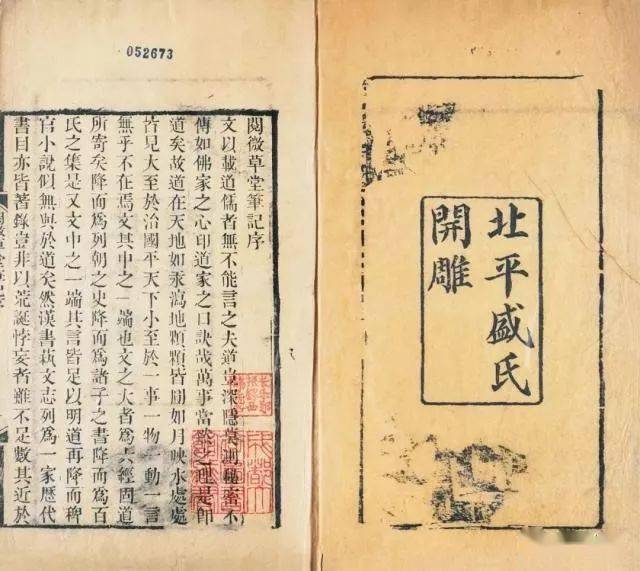 北平盛氏
開雕
052673
閱微草堂筆記序
文以載道儒者無不能言之夫道豈深隱莫測秘密不
傳如佛家之心印道家之口訣哉萬事當然之理是即
道矣故道在天地如汞瀉地顆顆皆圓如月映水處處
皆見大至於治國平天下小至於一事一物一動一言
無乎不在焉文其中之一端也文之大者為六經固道
所寄矣降而為列朝之史降而為諸子之書降而為百
氏之集是又文中之一端其言皆足以明道再降而稗
官小說似無與於道矣然漢書藝文志列為一家歷代
書目亦皆著錄豈非以荒誕悖妄者雖不足數其近於